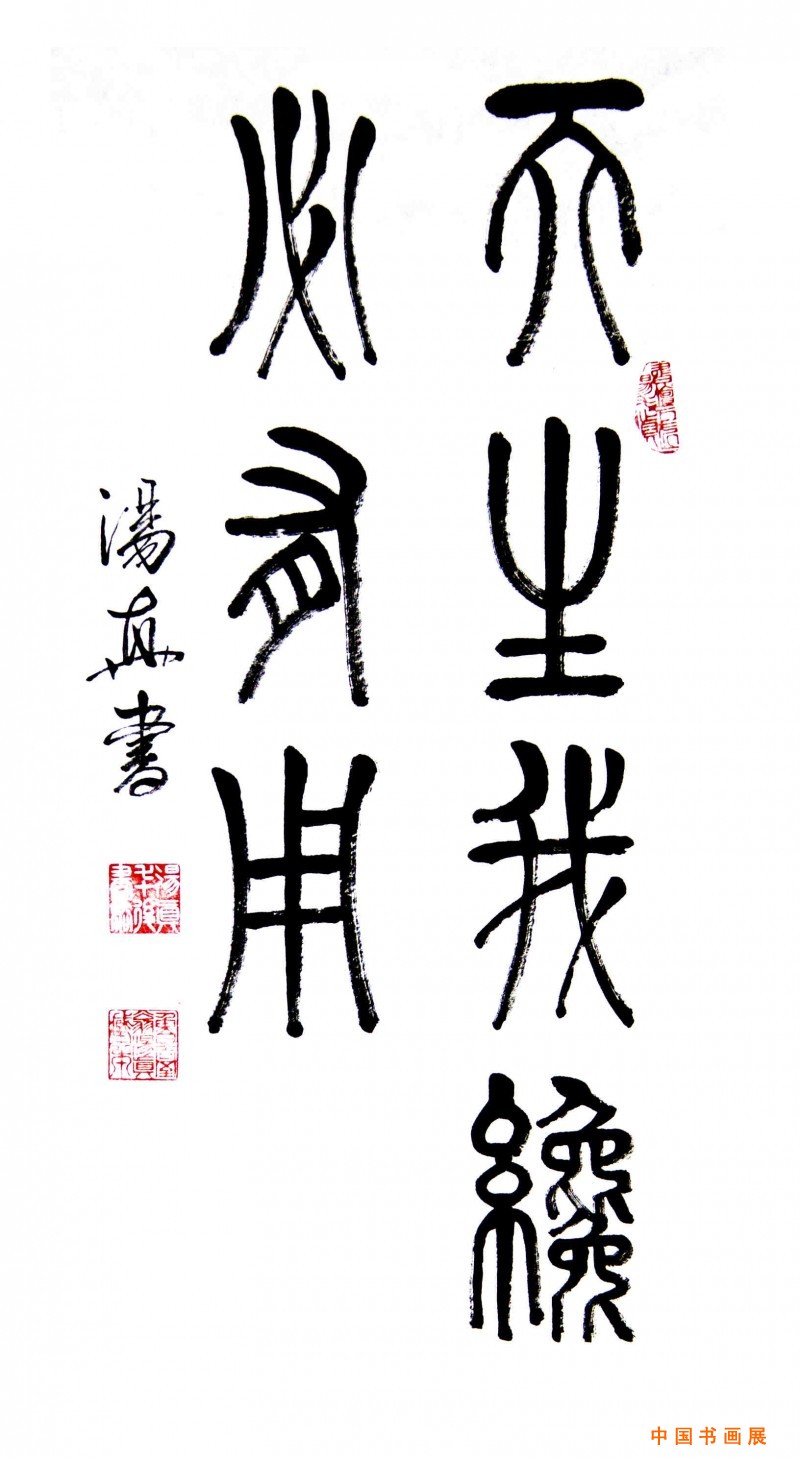 天生我纔
必有用
湯真書
中国书画展